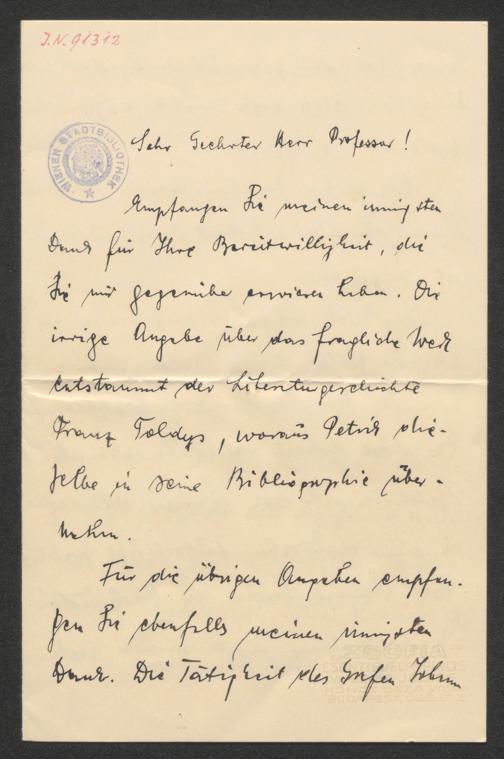 J.N. 91312
WIENER STADTBIBLIOTHEK
Sehr Geehrter Herr Professor!
Empfangen Sie meinen innigsten
Dank für Ihre Bereitwilligkeit, die
Sie mir gegenüber erwiesen haben. Die
irrige Angabe über das fragliche Werk
entstammt der Literaturgeschichte
Franz Toldys, woraus Petrik die-
selbe in seine Bibliographie über-
nahm.
Für die übrigen Angaben empfan-
gen Sie ebenfalls meinen innigsten
Dank. Die Tätigkeit des Grafen Johann